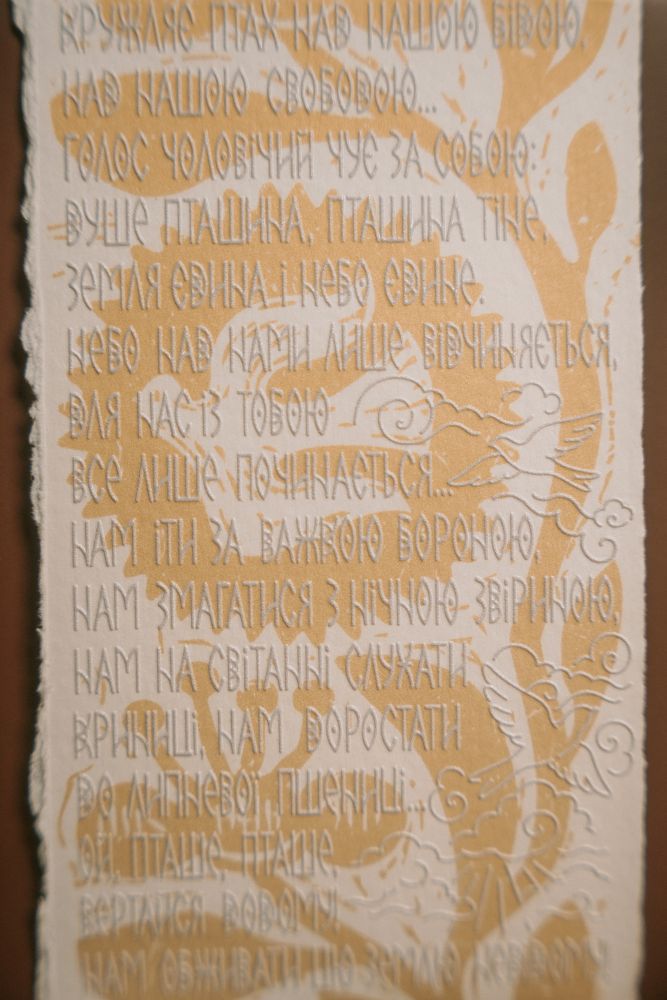 КРУЖЛЯЄ ПТАХ НАД НАШОЮ БІДОЮ,
НАД НАШОЮ СВОБОДОЮ...
ГОЛОС ЧОЛОВІЧИЙ ЧУЄ ЗА СОБОЮ:
ДУШЕ ПТАШИНА, ПТАШИНА ТІНЕ,
ЗЕМЛЯ ЄВИНА І НЕБО ЄВИНЕ.
НЕБО НАД НАМИ ЛИШЕ ВІДЧИНЯЄТЬСЯ,
ДЛЯ НАС ІЗ ТОБОЮ
ВСЕ ЛИШЕ ПОЧИНАЄТЬСЯ...
НАМ ІТИ ЗА ВАЖКОЮ БОРОНОЮ,
НАМ ЗМАГАТИСЯ З НІЧНОЮ ЗВІРИНОЮ,
НАМ НА СВІТАННІ СЛУХАТИ
КРИНИЦІ, НАМ ДОРОСТАТИ
ДО ЛИПНЕВОЇ ПШЕНИЦІ...
ОЙ, ПТАШЕ, ПТАШЕ,
ВЕРТАЙСЯ ДОДОМУ!
НАМ ОБЖИВАТИ ЦЮ ЗЕМЛЮ НЕВІДОМУ!